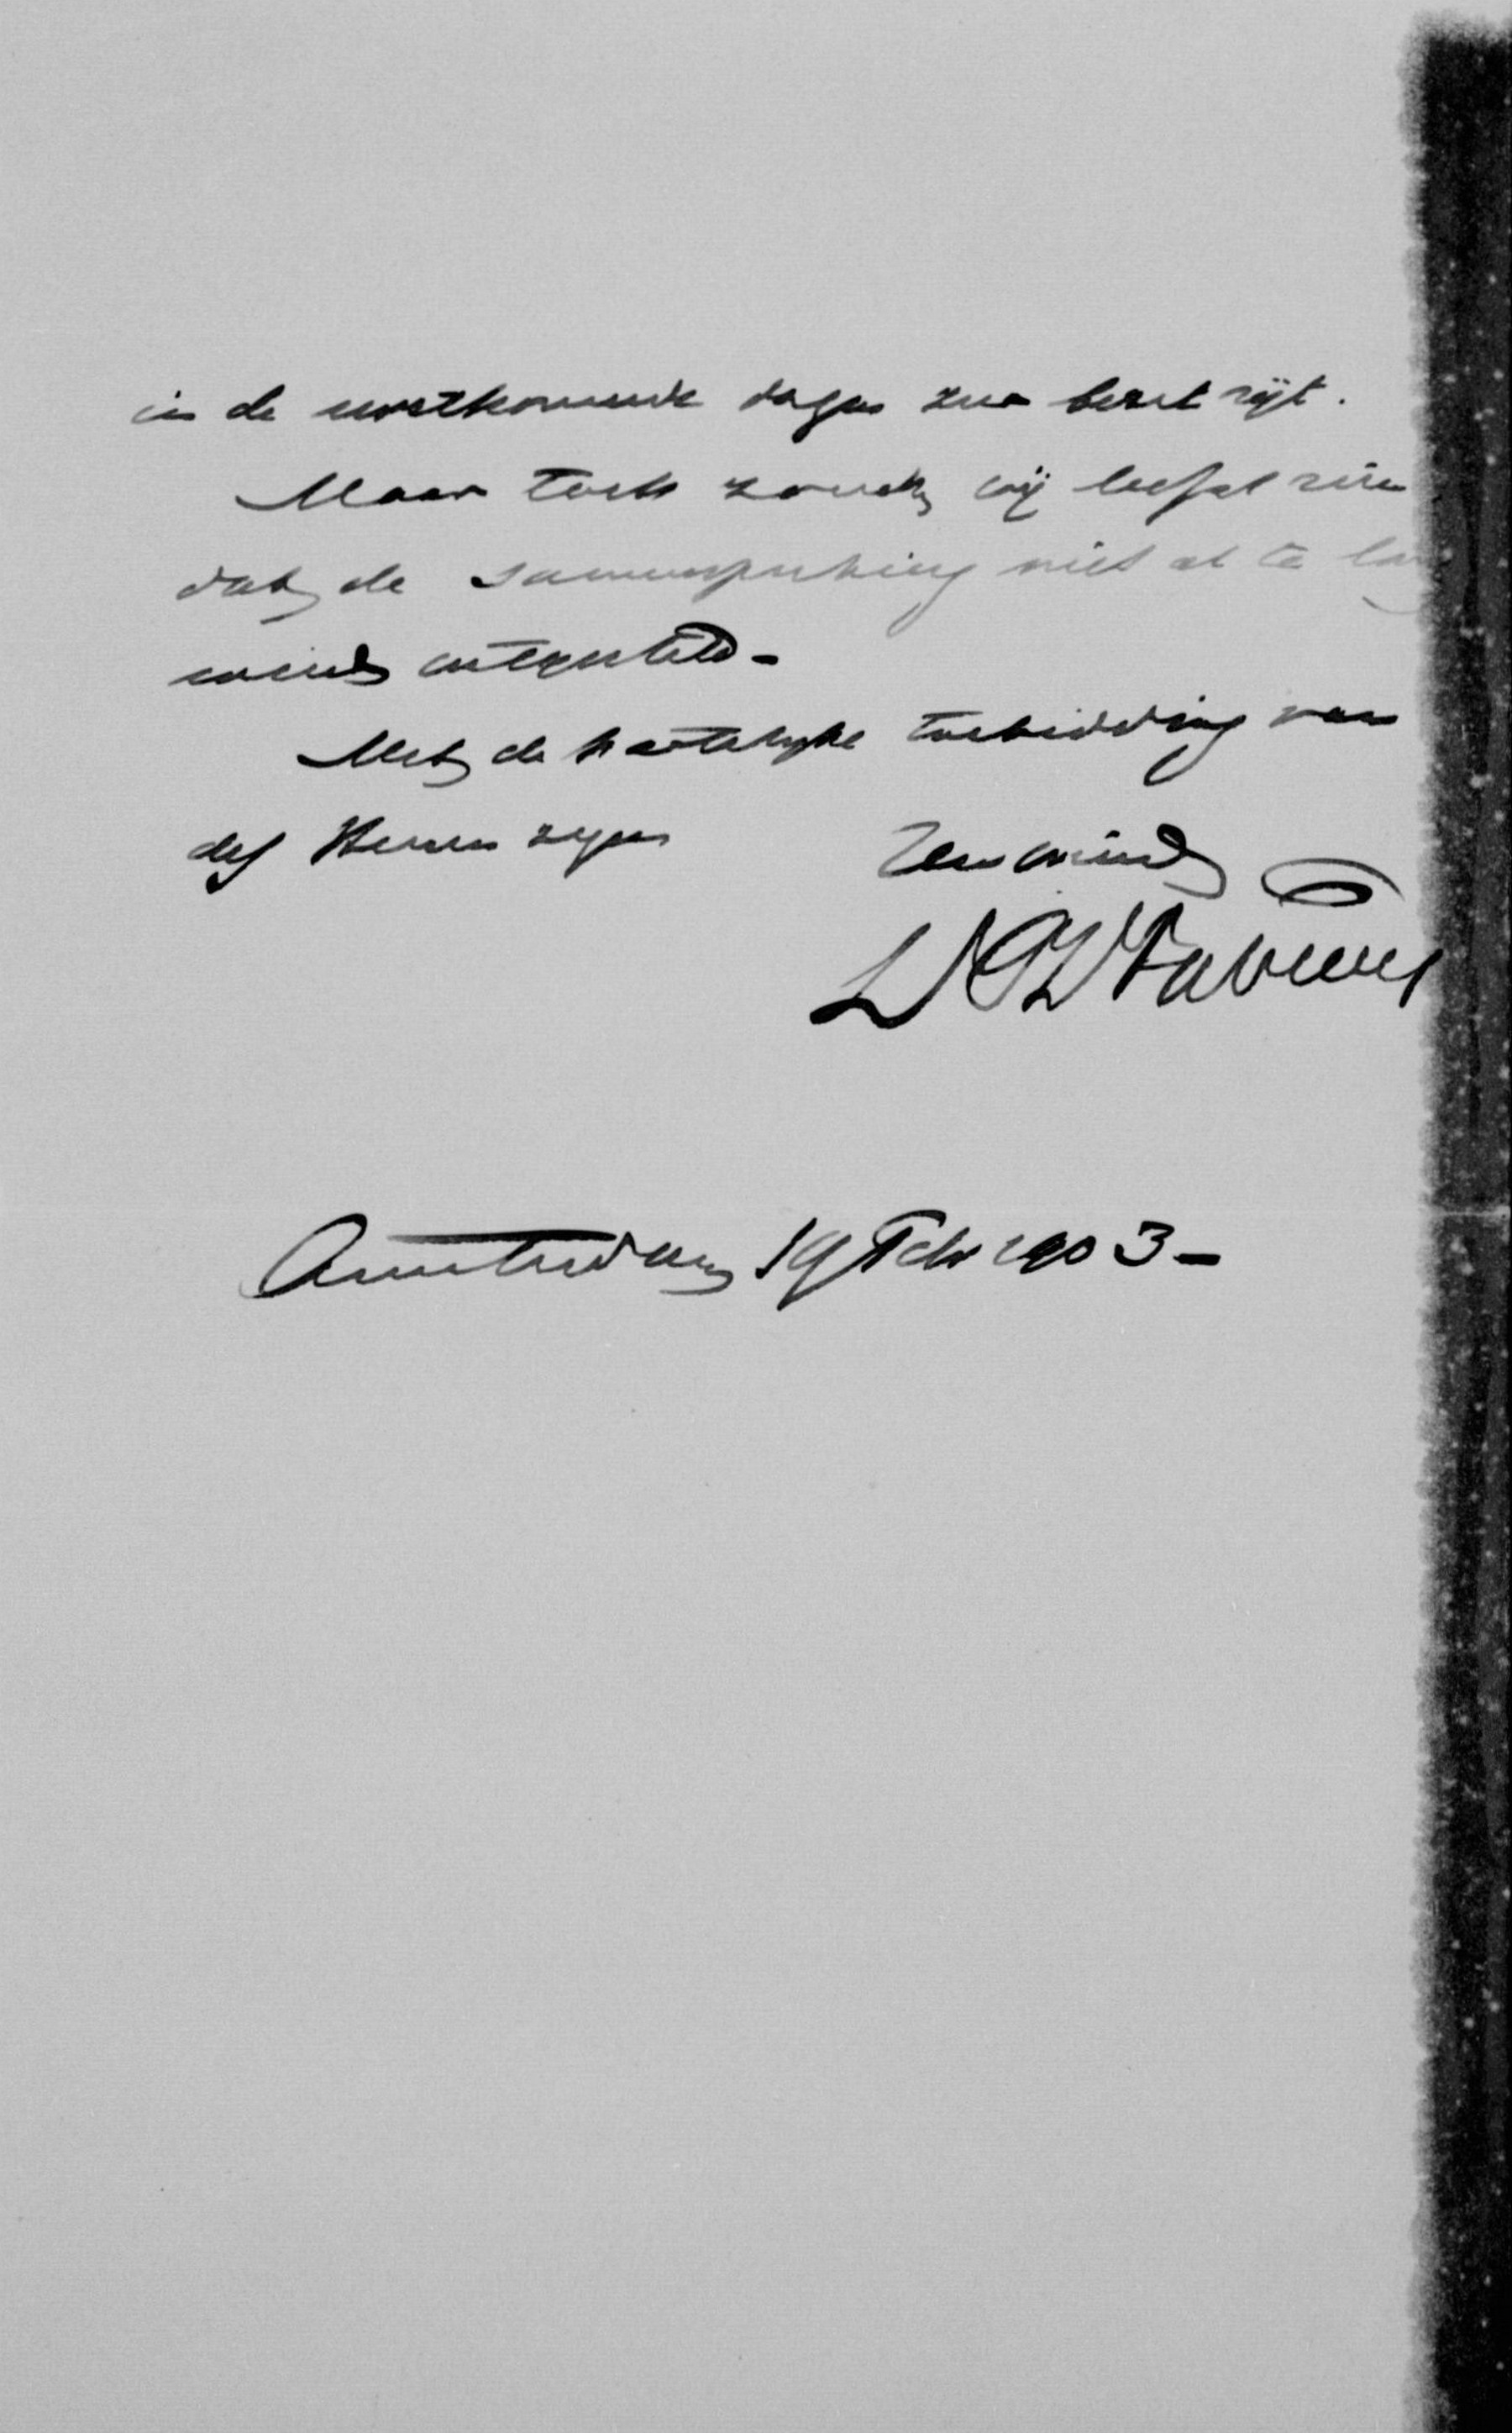 in de eerstkomende dagen zeer bezet zijt.
Maar toch zouden wij liefst zien
dat de samenspreking niet al te lang
wierd uitgesteld -
Met de hartelijke toebidding van
des Heeren zegen Uw vriend
D P D Fabius
Amsterdam 19 Feb 1903 -